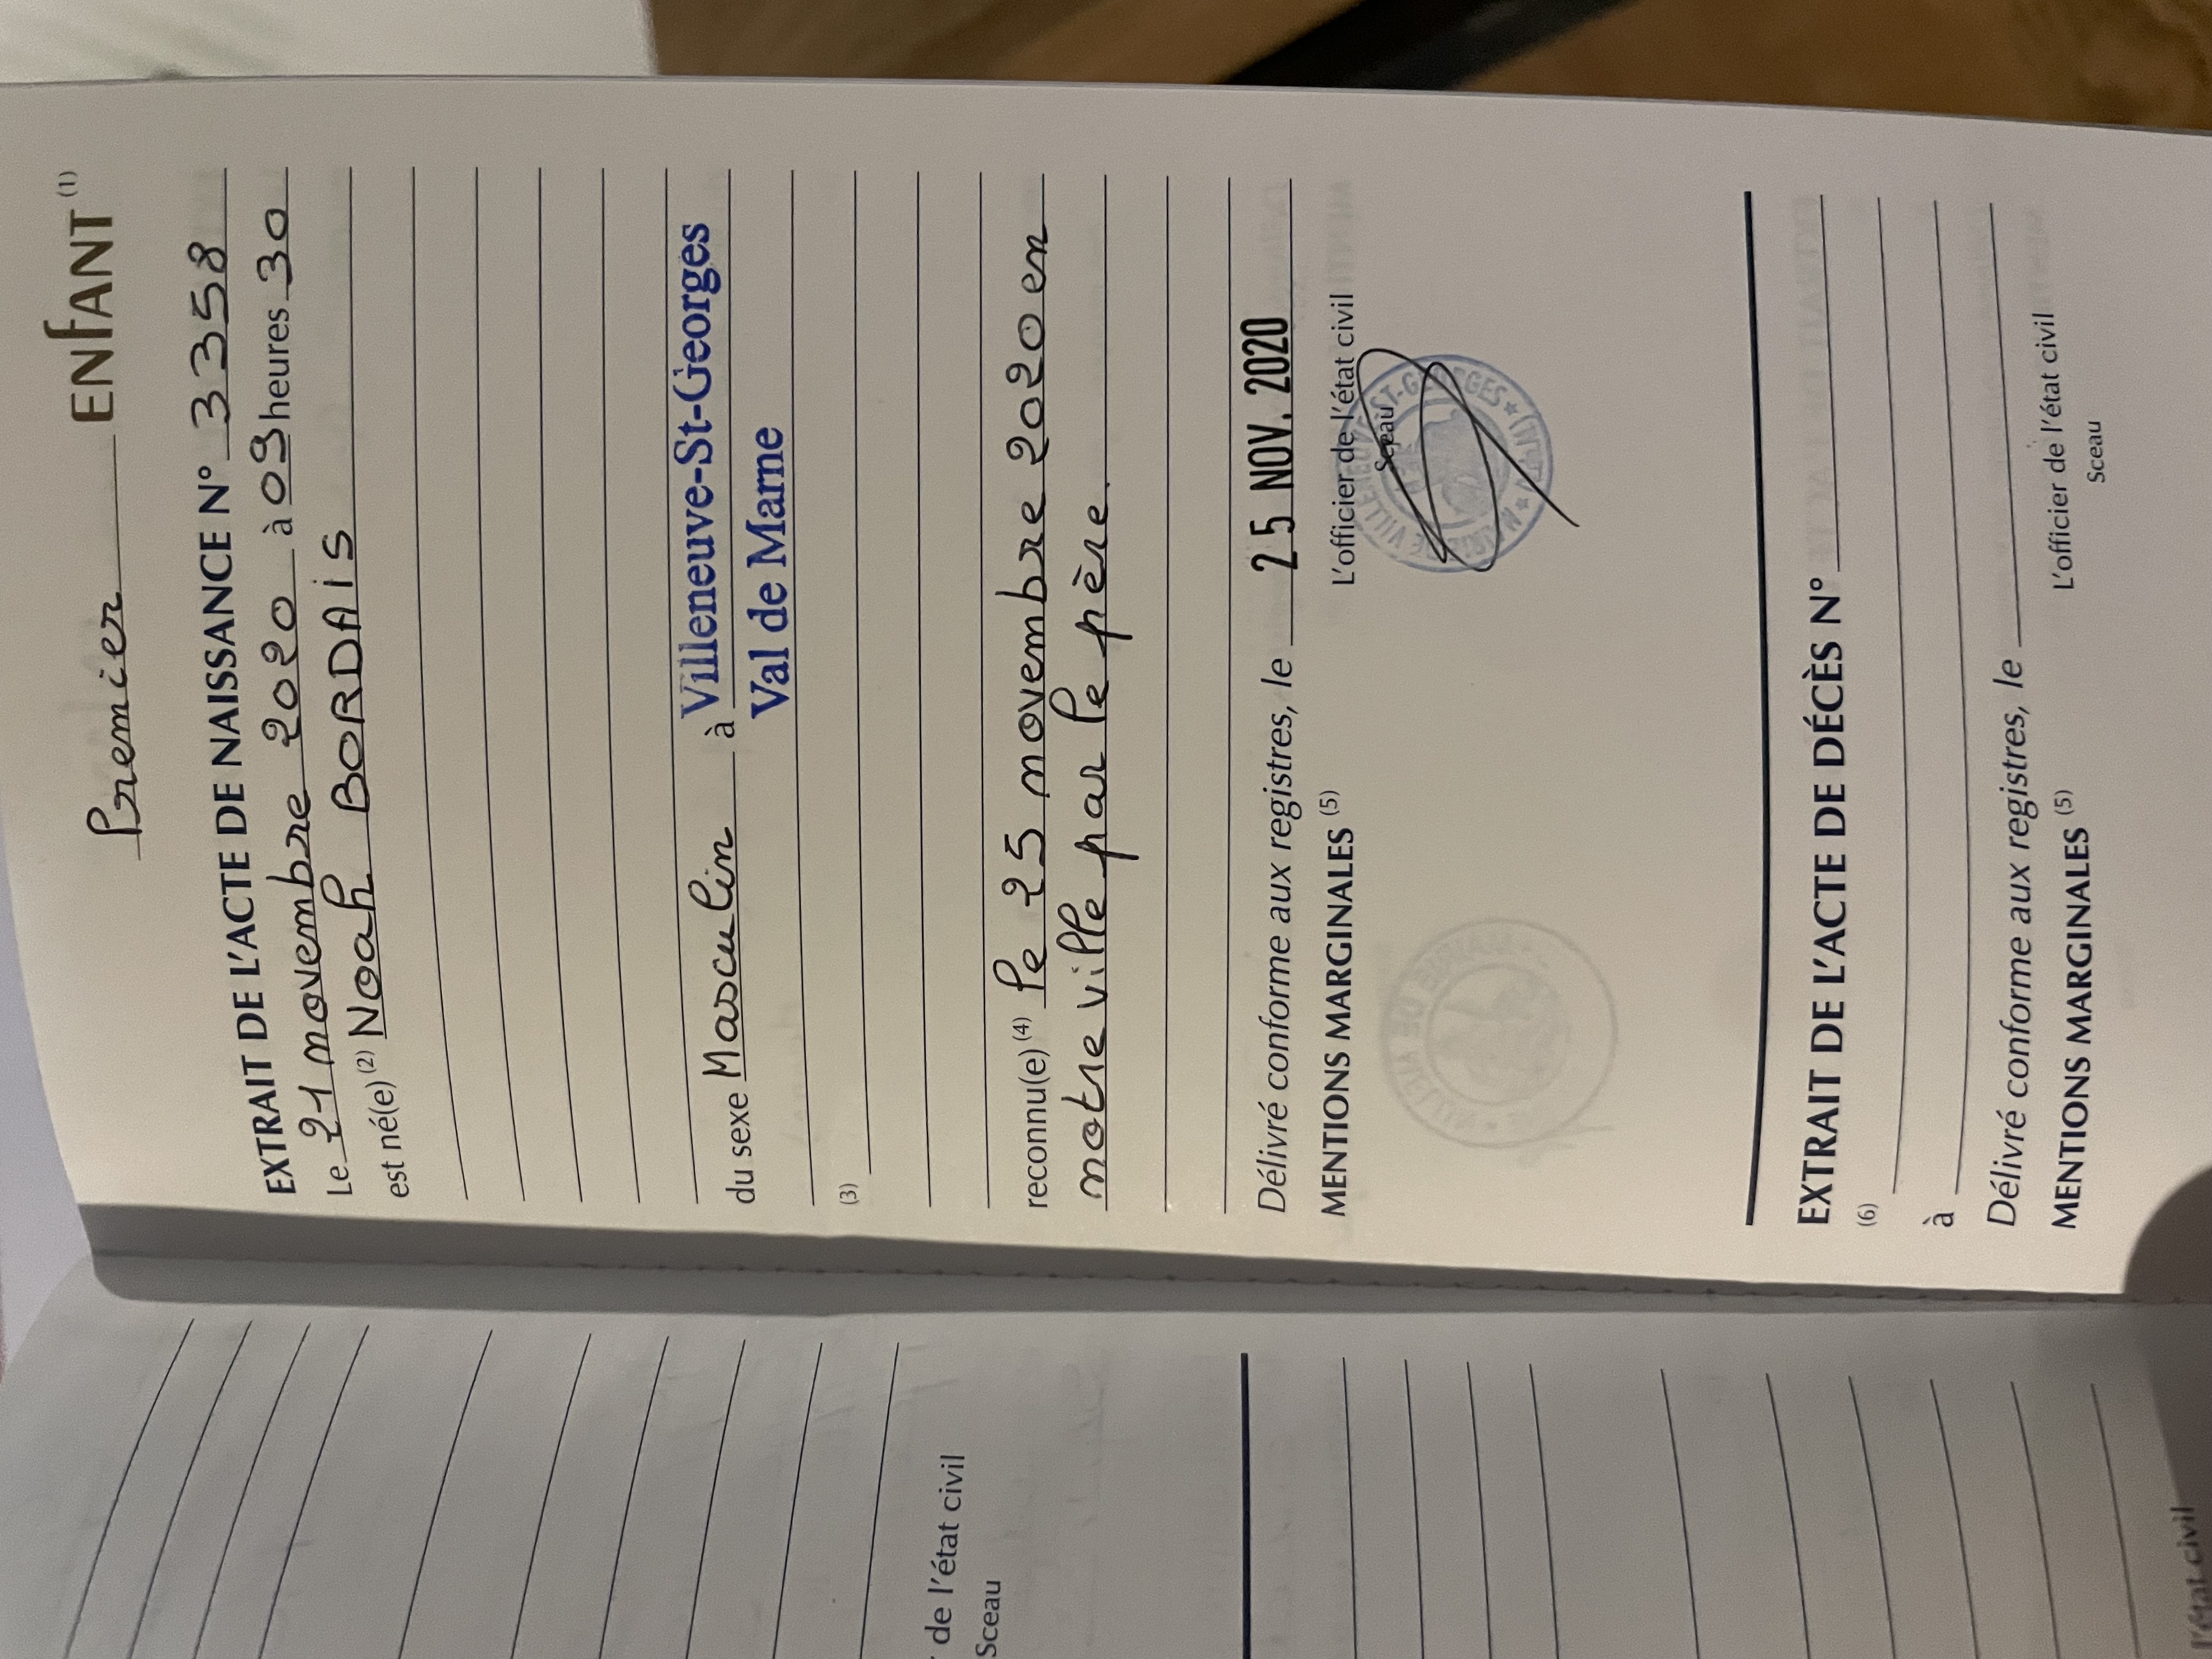 Premier ENFANT (1)
EXTRAIT DE L'ACTE DE NAISSANCE N° 3358
Le 21 novembre 2020 à 03 heures 30
est né(e) (2) Noah BORDAIS
du sexe Masculin à Villeneuve-St-Georges
Val de Marne
(3)
reconnu(e) (4) le 25 novembre 2020 en
notre ville par le père.
Délivré conforme aux registres, le 25 NOV. 2020
MENTIONS MARGINALES (5)
L'officier de l'état civil
Sceau
MAIRIE DE VILLENEUVE-ST-GEORGES
EXTRAIT DE L'ACTE DE DÉCÈS N°
(6)
à
Délivré conforme aux registres, le
MENTIONS MARGINALES (5)
L'officier de l'état civil
Sceau
de l'état civil
Sceau
l'état civil